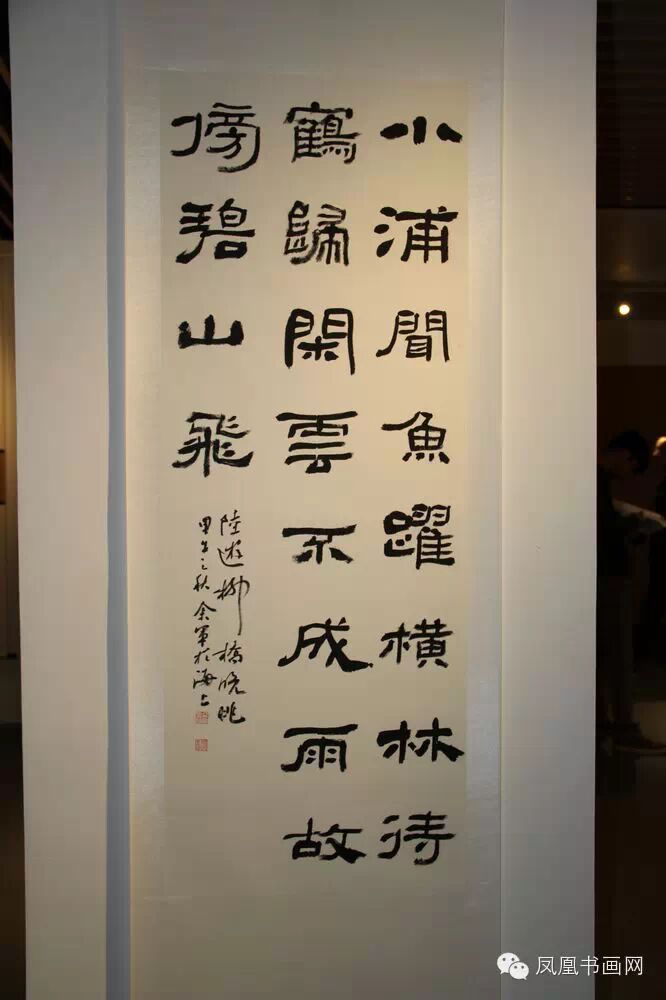 小浦聞魚躍横林待
鶴歸閑雲不成雨故
傍碧山飛
陸游柳橋晚眺
甲午之秋余軍於海上
凤凰书画网